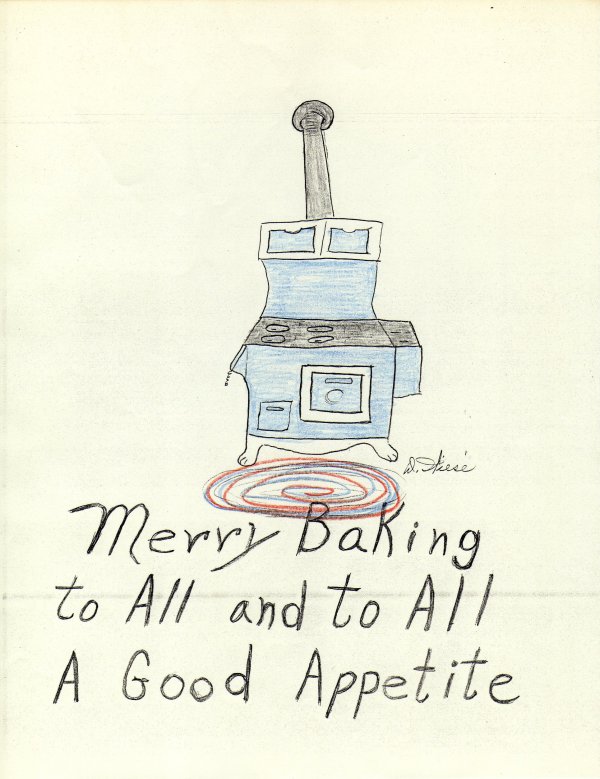 Merry Baking
to All and to All
A Good Appetite